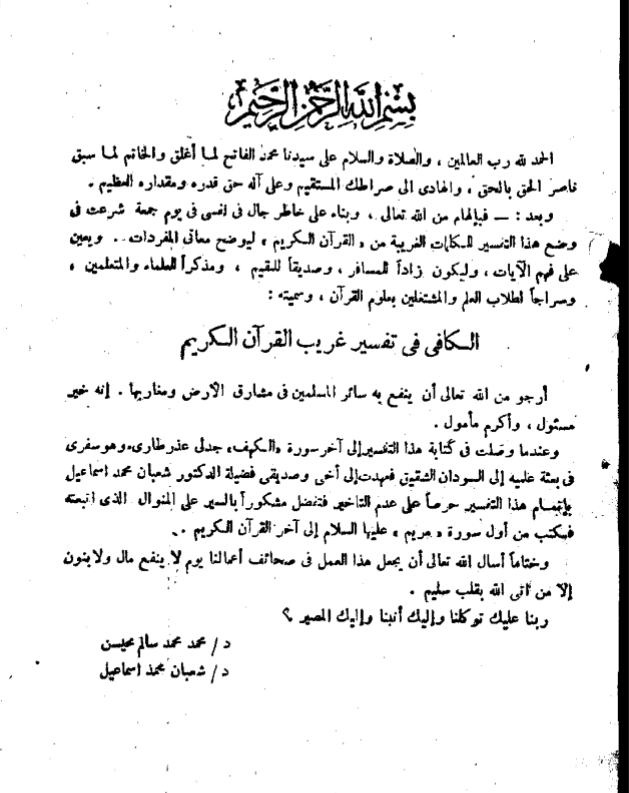 بسم الله الرحمن الرحيم
الحمد لله رب العالمين ، والصلاة والسلام على سيدنا محمد الفاتح لما أغلق والخاتم لما سبق
ناصر الحق بالحق ، والهادى الى صراطك المستقيم وعلى آله حق قدره ومقداره العظيم .
وبعد : — فبإلهام من الله تعالى ، وبناء على خاطر جال فى نفسى فى يوم جمعة شرعت فى
وضع هذا التفسير للكلمات الغريبة من « القرآن الكريم » ليوضح معانى المفردات . ويعين
على فهم الآيات ، وليكون زاداً للمسافر ، وصديقاً للمقيم ، ومذكراً للعلماء والمتعلمين ،
وسراجاً لطلاب العلم والمشتغلين بعلوم القرآن ، وسميته :
الكافى فى تفسير غريب القرآن الكريم
أرجو من الله تعالى أن ينفع به سائر المسلمين فى مشارق الأرض ومغاربها . إنه خير
مسئول ، وأكرم مأمول .
وعندما وصلت فى كتابة هذا التفسير إلى آخر سورة «الكهف» جد لى عذر طارىء وهو سفرى
فى بعثة علمية إلى السودان الشقيق فعهدت إلى أخى وصديقى فضيلة الدكتور شعبان محمد اسماعيل
بإتمام هذا التفسير حرصاً على عدم التاخير فتفضل مشكوراً بالسير على المنوال الذى اتبعته
فكتب من أول سورة « مريم » عليها السلام إلى آخر القرآن الكريم .
وختاماً أسال الله تعالى أن يجعل هذا العمل فى صحائف أعمالنا يوم لا ينفع مال ولا بنون
إلا من اتى الله بقلب سليم .
ربنا عليك توكلنا وإليك أنبنا وإليك المصير ؟
د/ محمد محمد سالم محيسن
د/ شعبان محمد اسماعيل